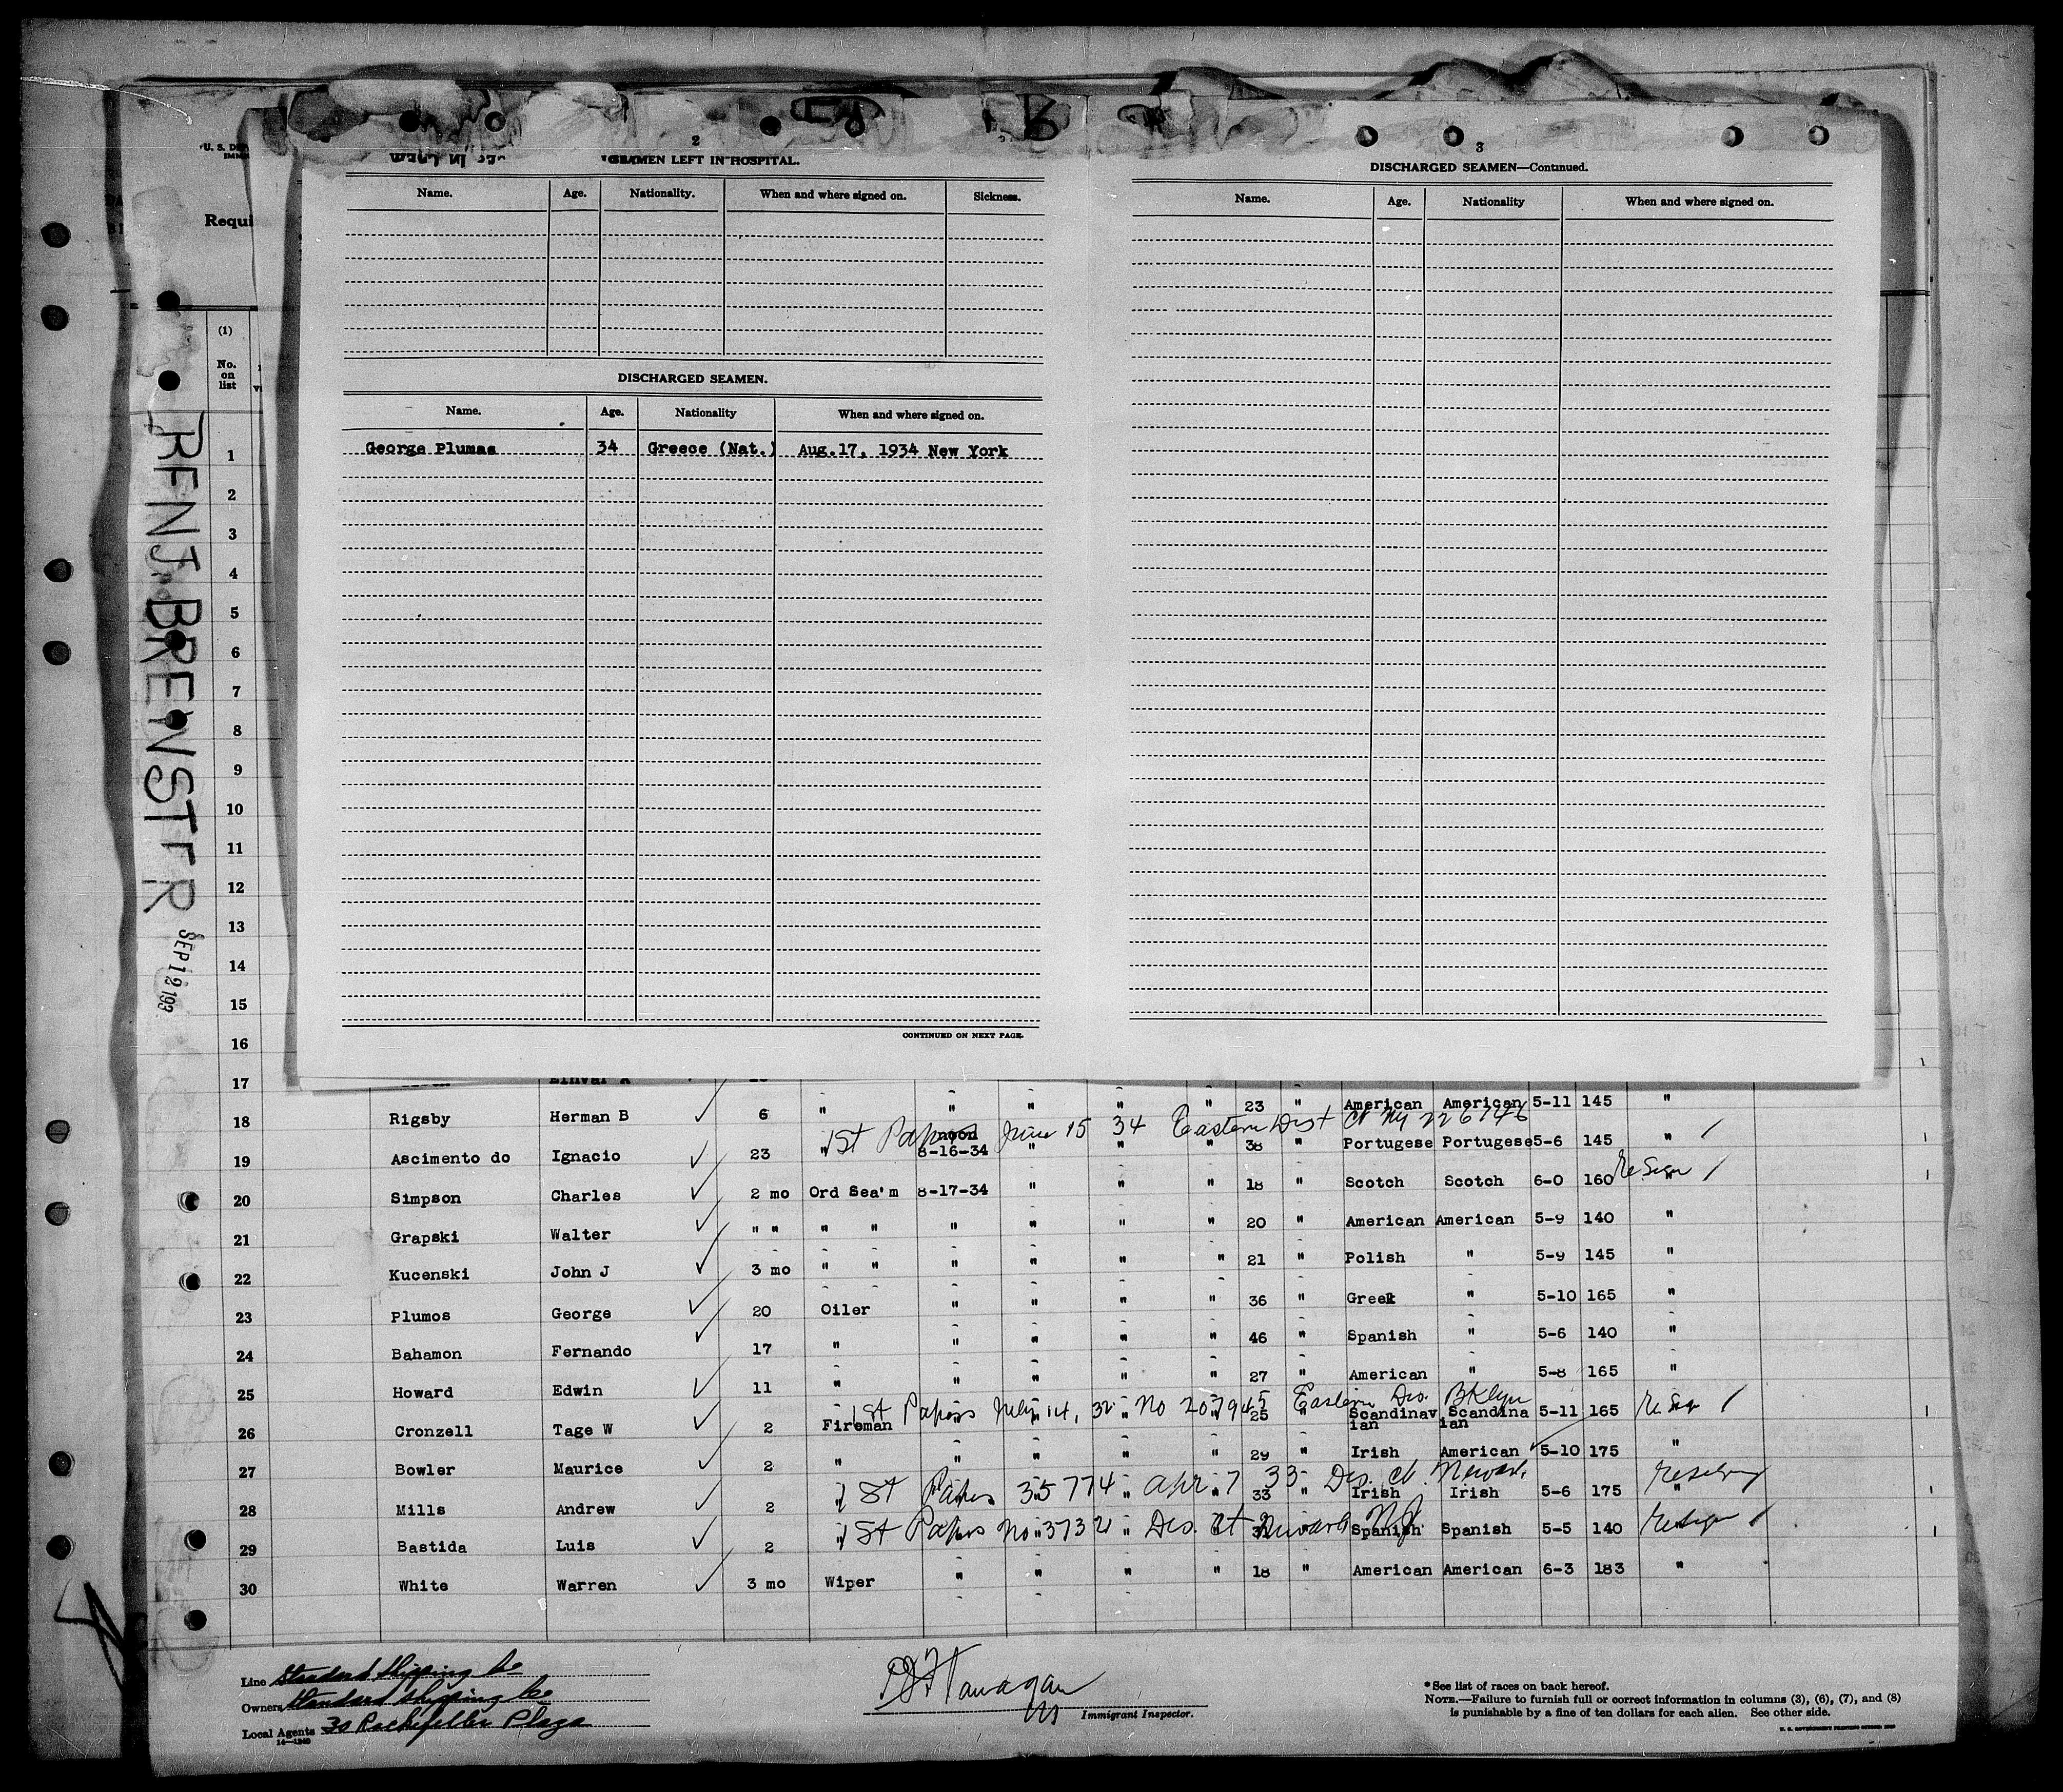 2
SEAMEN LEFT IN HOSPITAL.
Name. Age. Nationality. When and where signed on. Sickness.
DISCHARGED SEAMEN.
Name. Age. Nationality When and where signed on.
George Plumas 34 Greece (Nat.) Aug.17, 1934 New York
CONTINUED ON NEXT PAGE.
3
DISCHARGED SEAMEN—Continued.
Name. Age. Nationality When and where signed on.
U. S. DE
IMM
Requi
(1)
No.
on
list
BENJ. BREWSTER
SEP 12 193
1
2
3
4
5
6
7
8
9
10
11
12
13
14
15
16
17
18 Rigsby Herman B ✓ 6 " " " " " 23 " American American 5-11 145 "
1st Papers June 15 34 Eastern Dist Ct NY 226746
noon
19 Ascimento do Ignacio ✓ 23 " 8-16-34 " " " 38 " Portugese Portugese 5-6 145 "
20 Simpson Charles ✓ 2 mo Ord Sea'm 8-17-34 " " " 18 " Scotch Scotch 6-0 160 " ReSign
21 Grapski Walter ✓ " " " " " " " " 20 " American American 5-9 140 "
22 Kucenski John J ✓ 3 mo " " " " " " 21 " Polish " 5-9 145 "
23 Plumos George ✓ 20 Oiler " " " " 36 " Greek " 5-10 165 "
24 Bahamon Fernando ✓ 17 " " " " " 46 " Spanish " 5-6 140 "
25 Howard Edwin ✓ 11 " " " " " 27 " American " 5-8 165 "
1st Papers July 14, 32 No 207945 Eastern Dis. BKlyn
26 Cronzell Tage W ✓ 2 Fireman " " 25 " Scandinavian Scandinavian 5-11 165 ReSign
27 Bowler Maurice ✓ 2 " " " " " 29 " Irish American 5-10 175 "
1st Papers 35774 Apr 7 33 Dis. Ct. Newark
28 Mills Andrew ✓ 2 " " " 33 " Irish Irish 5-6 175 " resign
1st Papers No 37321 Dis. Ct Newark NJ
29 Bastida Luis ✓ 2 " " " Spanish Spanish 5-5 140 resign
30 White Warren ✓ 3 mo Wiper " " " " 18 " American American 6-3 183 "
Line Standard Shipping Co
Owners Standard Shipping Co
Local Agents 30 Rockefeller Plaza
14—1240
Flanagan
Immigrant Inspector.
* See list of races on back hereof.
NOTE.—Failure to furnish full or correct information in columns (3), (6), (7), and (8)
is punishable by a fine of ten dollars for each alien. See other side.